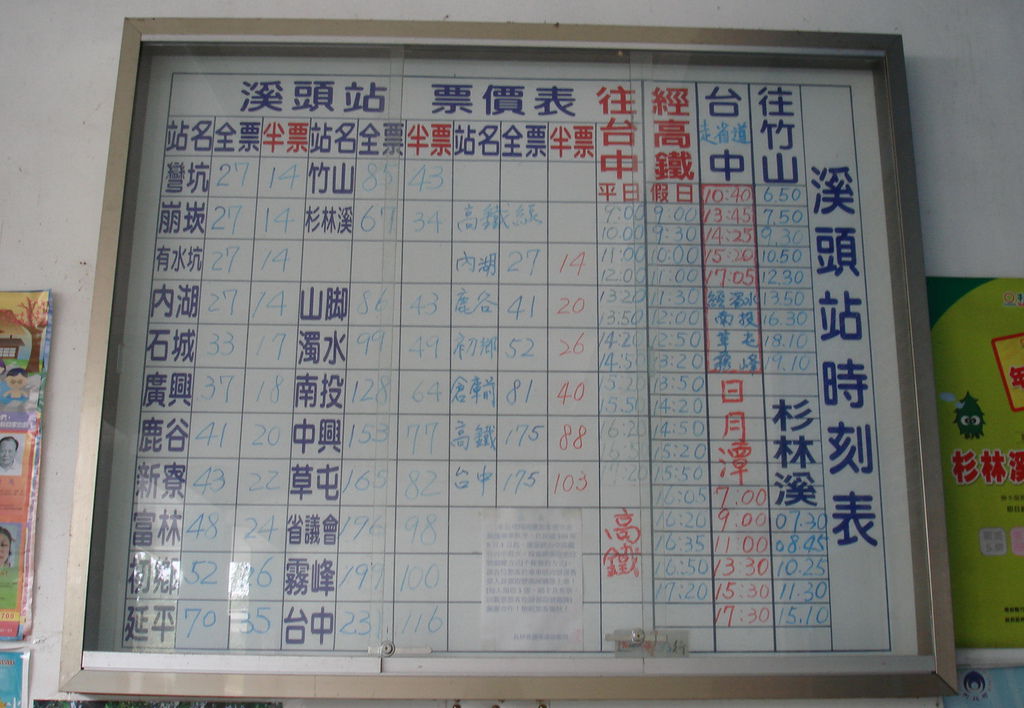 溪頭站 票價表
站名 全票 半票 站名 全票 半票 站名 全票 半票
彎坑 27 14 竹山 85 43
崩崁 27 14 杉林溪 67 34 高鐵線
有水坑 27 14 內湖 27 14
內湖 27 14 山脚 86 43 鹿谷 41 20
石城 33 17 濁水 99 49 初鄉 52 26
廣興 37 18 南投 128 64 81 40
鹿谷 41 20 中興 153 77 高鐵 175 88
新寮 43 22 草屯 165 82 台中 175 103
富林 48 24 省議會 196 98
初鄉 52 26 霧峰 199 100
延平 70 35 台中 231 116
往台中
經高鐵
平日 假日
9:00 9:00
10:00 9:30
11:00 10:00
12:00 11:00
13:20 11:30
13:50 12:00
14:20 12:50
14:50 13:20
15:20 13:50
15:50 14:20
16:20 14:50
15:20
15:50
16:05
16:20
16:35
16:50
17:20
高鐵
台中
走省道
10:40
13:45
14:25
15:20
17:05
經濁水
南投
草屯
霧峰
日月潭
7:00
9:00
11:00
13:30
15:30
17:30
往竹山
6.50
7.50
9.30
10.50
12.30
13.50
16.30
18.10
19.10
杉林溪
07.30
08.45
10.25
11.30
15.10
溪頭站時刻表
杉林溪